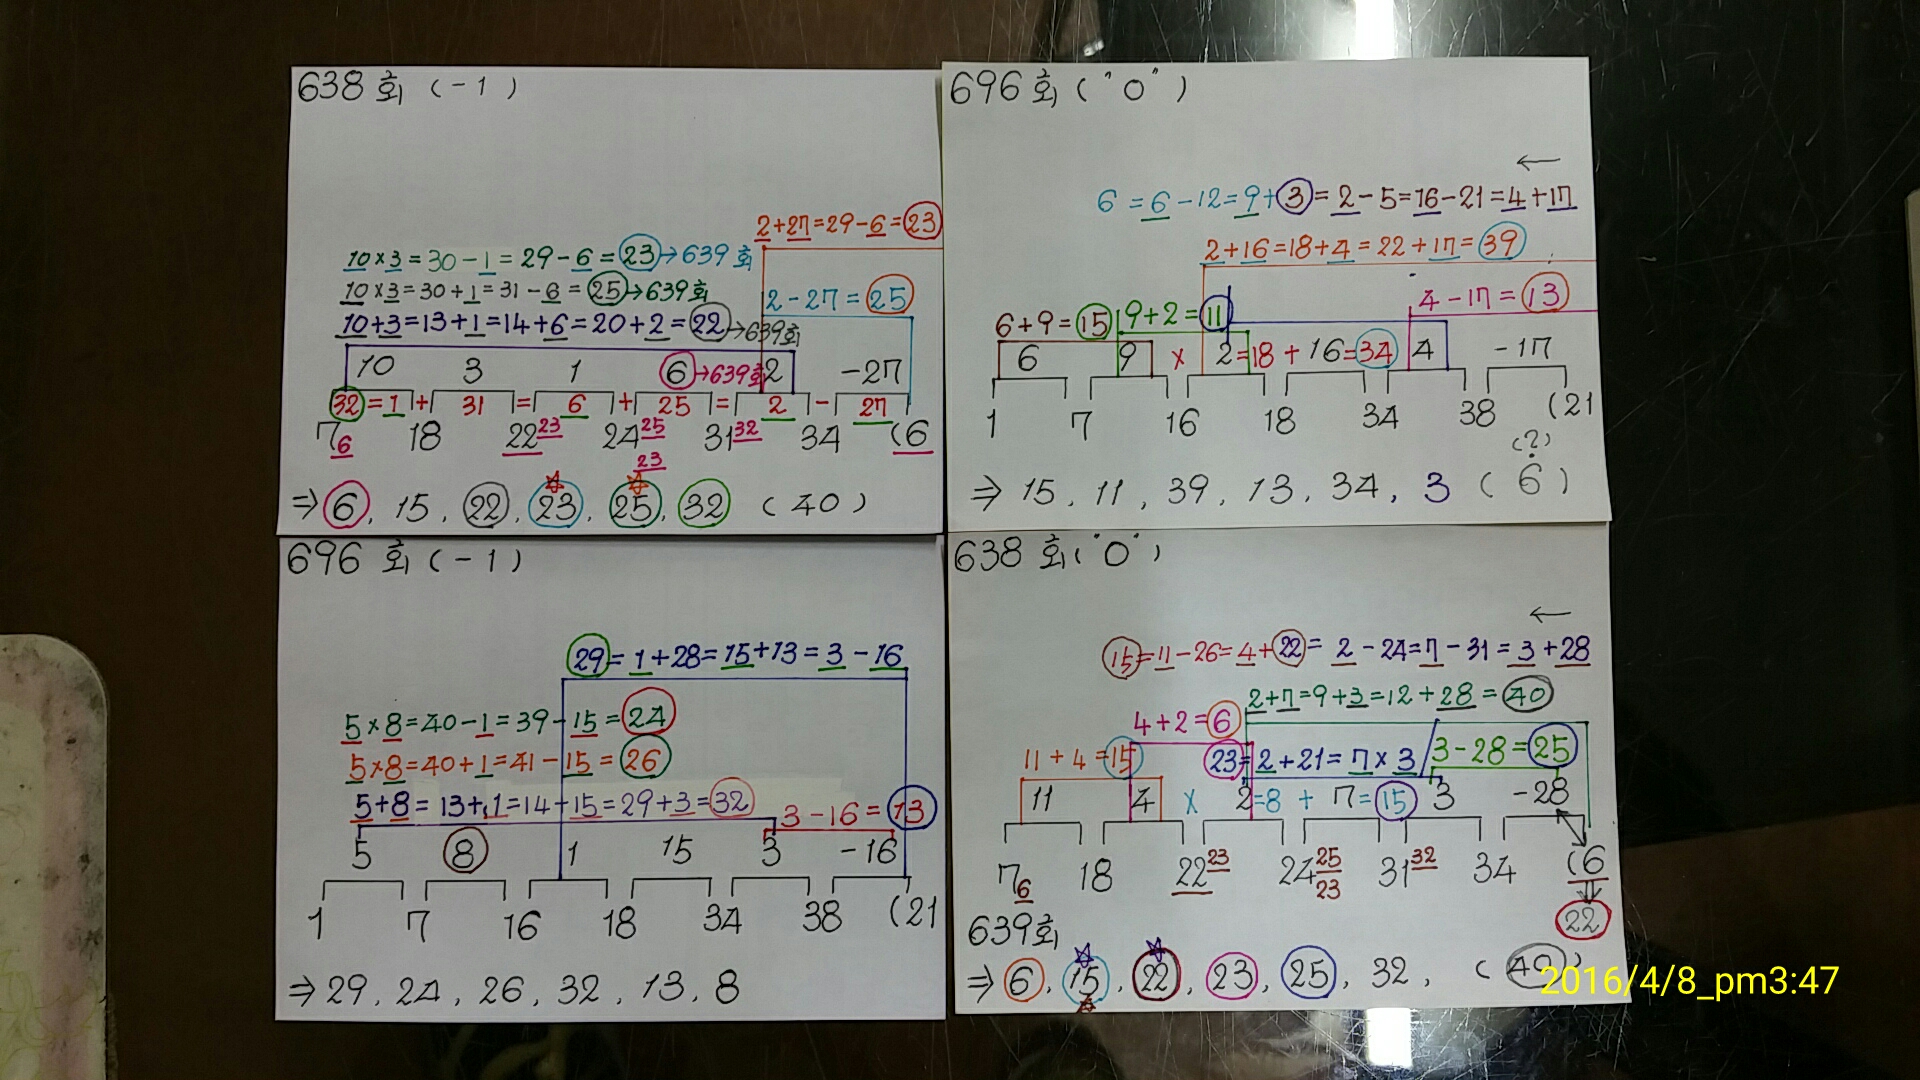 638 회 (-1)
2+27=29-6=23
10×3=30-1=29-6=23→639 회
10×3=30+1=31-6=25→639회
2-27=25
10+3=13+1=14+6=20+2=22→639회
10 3 1 6→639회 2 -27
32=1+ 31 = 6 + 25 = 2 - 27
7 6 18 22 23 24 25 31 32 34 (6
23
⇒ 6, 15, 22, 23, 25, 32 (40)
696 회 ("0")
←
6=6-12=9+3=2-5=16-21=4+17
2+16=18+4=22+17=39
4-17=13
6+9=15 9+2=11
6 9 × 2=18+16=34 4 -17
1 7 16 18 34 38 (21
(?)
⇒ 15, 11, 39, 13, 34, 3 (6)
696 회 (-1)
29=1+28=15+13=3-16
5×8=40-1=39-15=24
5×8=40+1=41-15=26
5+8=13+1=14+15=29+3=32
3-16=13
5 8 1 15 3 -16
1 7 16 18 34 38 (21
⇒ 29, 24, 26, 32, 13, 8
638 회 ("0")
←
15=11-26=4+22=2-24=7-31=3+28
2+7=9+3=12+28=40
4+2=6
11+4=15 23=2+21=7×3 3-28=25
11 4 × 2=8+7=15 3 -28
7 6 18 22 23 24 25 31 32 34 (6
23
22
639회
⇒ 6, 15, 22, 23, 25, 32, (40)
2016/4/8_pm3:47